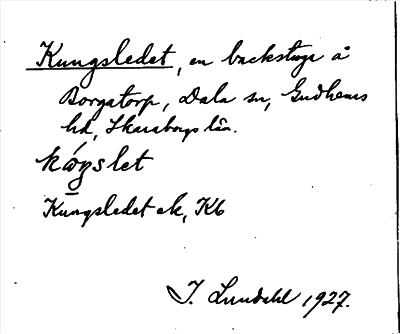 Kungsledet, en backstuga å
Borgatorp, Dala sn, Gudhems
hd, Skaraborgs län.
kóŋslet
Kungsledet ek, K6
I. Lundahl 1927.